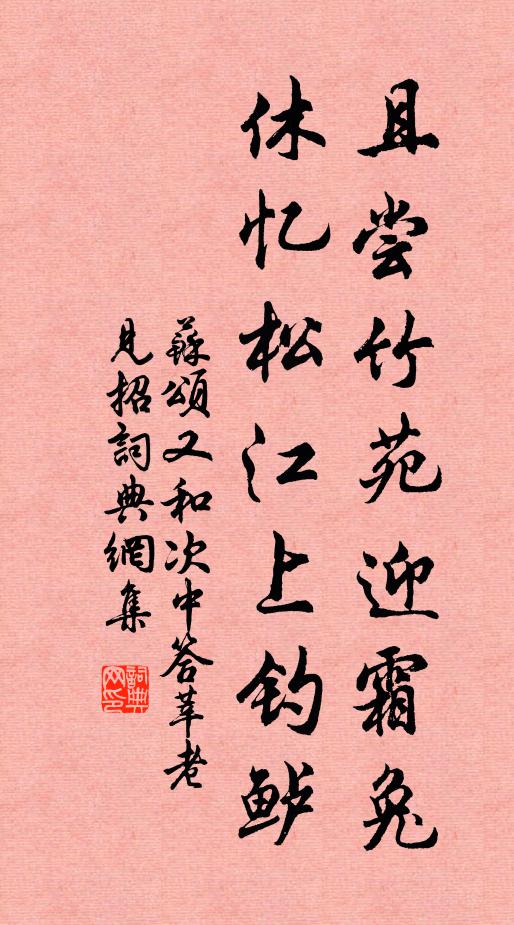 且尝竹苑迎霜兔
休忆松江上钓鲈
蘇頌又和次中答莘老
見招詞典網集
詞典
网印